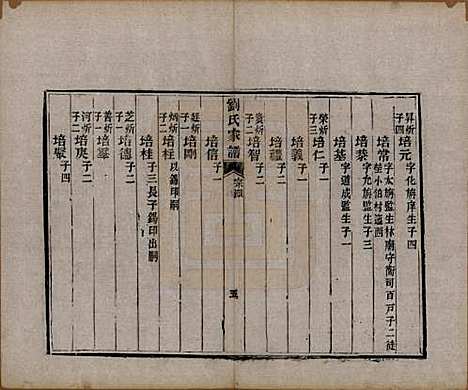 昇炘子四
培元 字化旃庠生子四
培常 字太旃監生林廟守衛司百戶子二徒
培棻 字允旃監生子三
培基 字道成監生子一
榮炘子三
培仁 子一
培義 子一
培禮 子二
貢炘子二
培智 子二
培信 子一
劉氏家譜
五
廷炘子一
培剛
炳炘子二
培柱 以錫印嗣
培桂 子三長子錫印出嗣
芝炘子一
培德 子二
善炘子一
培羣 子二
河炘子二
培庚 子二
培聚 子四